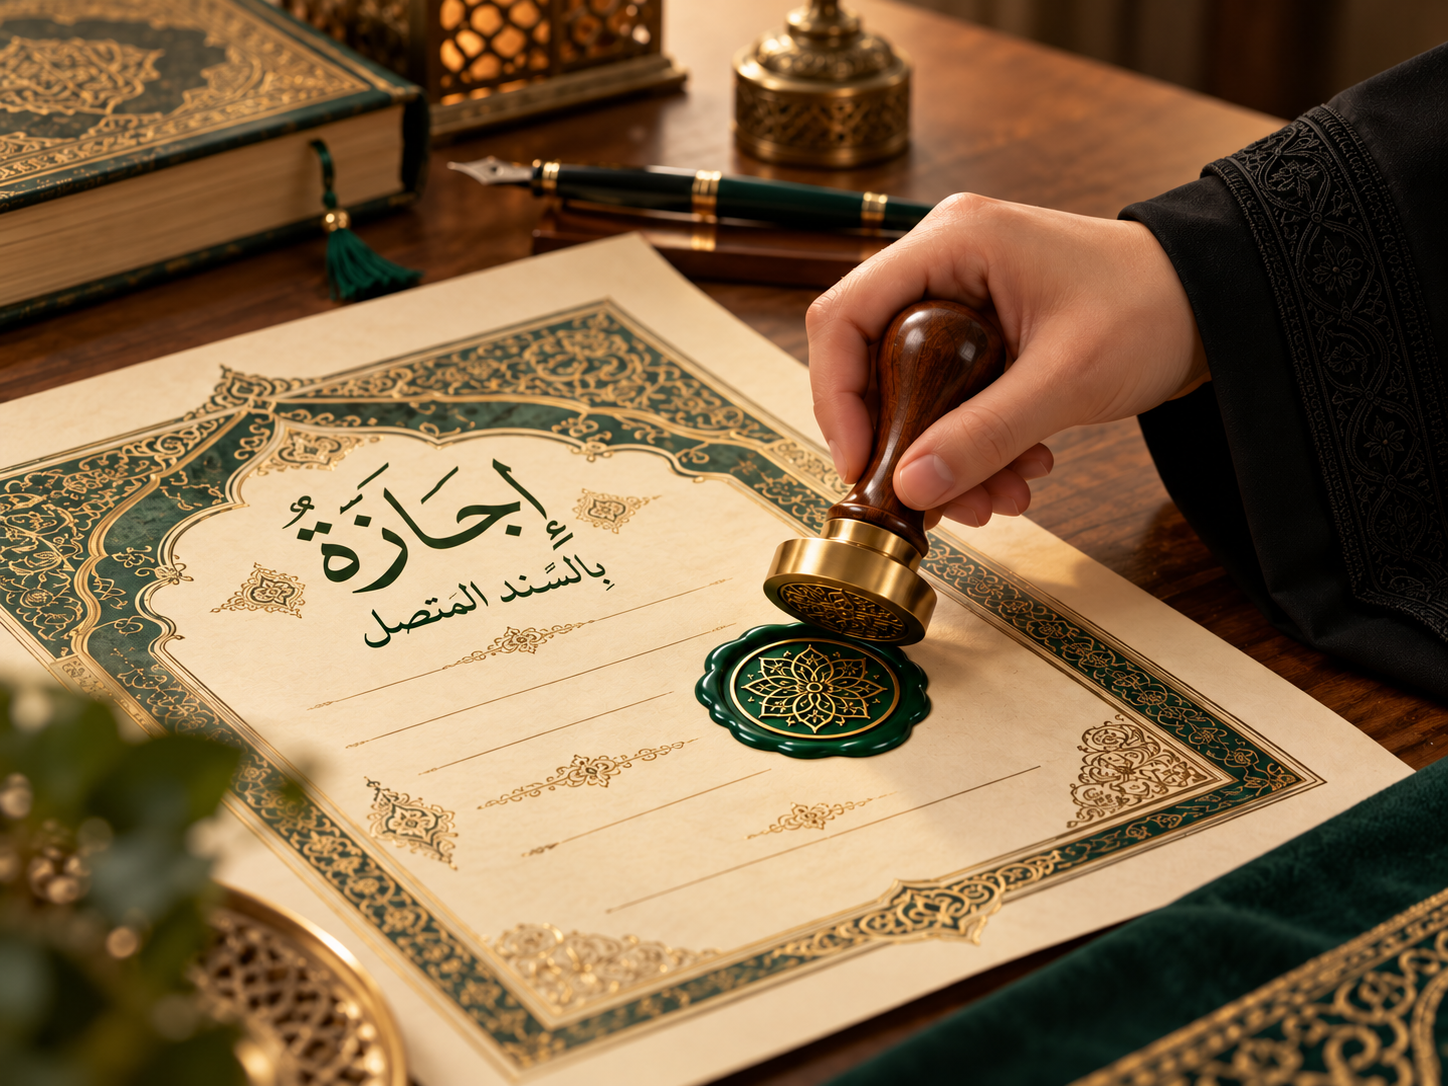 إِجَازَةٌ
بِالسَّند المَتصل